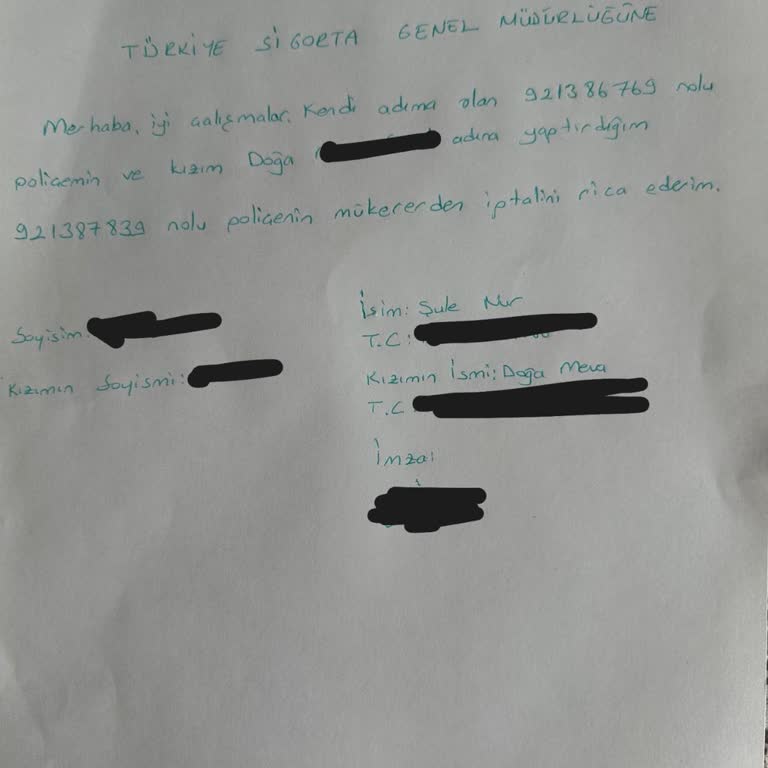 TÜRKİYE SİGORTA GENEL MÜDÜRLÜĞÜNE
Merhaba, iyi çalışmalar. Kendi adıma olan 921386769 nolu
poliçemin ve kızım Doğa adına yaptırdığım
921387839 nolu poliçenin mükererden iptalini rica ederim.
İsim: Şule Nur
Soyisim
T.C:
Kızımın İsmi: Doğa Meva
Kızımın Soyismi:
T.C
İmza: